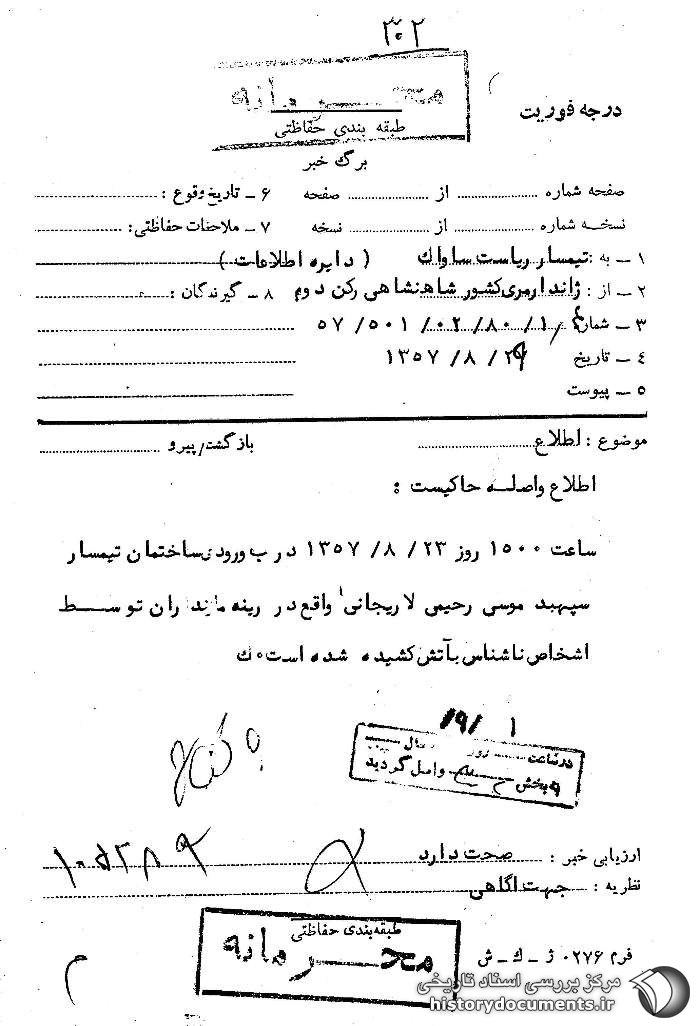 ۳۰۲
محرمانه
طبقه بندی حفاظتی
درجه فوریت
برگ خبر
صفحه شماره از صفحه ۶ ــ تاریخ وقوع :
نسخه شماره از نسخه ۷ ــ ملاحظات حفاظتی :
۱ ــ به : تیمسار ریاست ساواک ( دایره اطلاعات )
۲ ــ از : ژاندارمری کشور شاهنشاهی رکن دوم ۸ ــ گیرندگان :
۳ ــ شماره ۵۷/۵۰۱/۰۲/۸۰/۱/۴
۴ ــ تاریخ ۱۳۵۷/۸/۲۹
۵ ــ پیوست
موضوع : اطلاع بازگشت/پیرو
اطلاع واصله حاکیست :
ساعت ۱۵۰۰ روز ۲۳ /۸ /۱۳۵۷ درب ورودی ساختمان تیمسار
سپهبد موسی رحیمی لاریجانی واقع در رینه مازندران توسط
اشخاص ناشناس بآتش کشیده شده است ۰ ك
۹/۱
در ساعت روز سال
به بخش واصل گردید
ارزیابی خبر : صحت دارد
نظریه : جهت آگاهی
۱۰۵۲۸۹
طبقه بندی حفاظتی
محرمانه
فرم ۰۲۷۶ ژ ــ ك ــ ش
م
مرکز بررسی اسناد تاریخی
historydocuments.ir